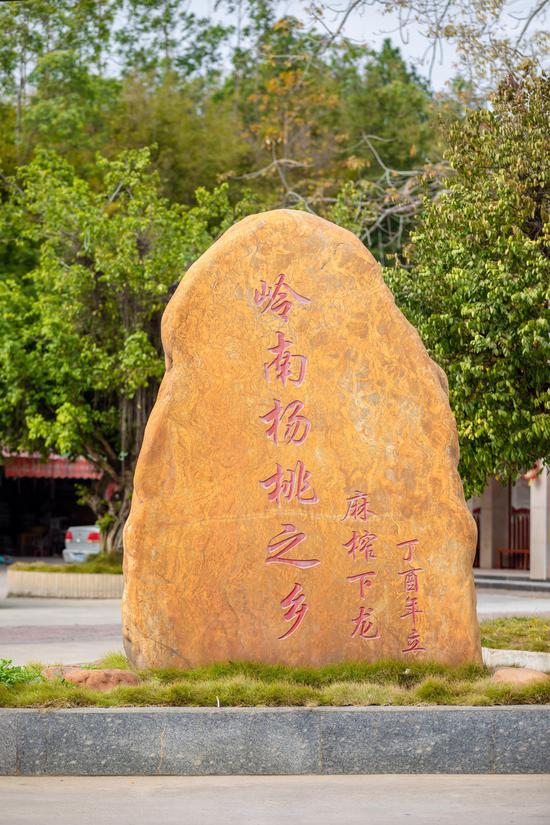 岭南杨桃之乡
麻榨下龙
丁酉年立